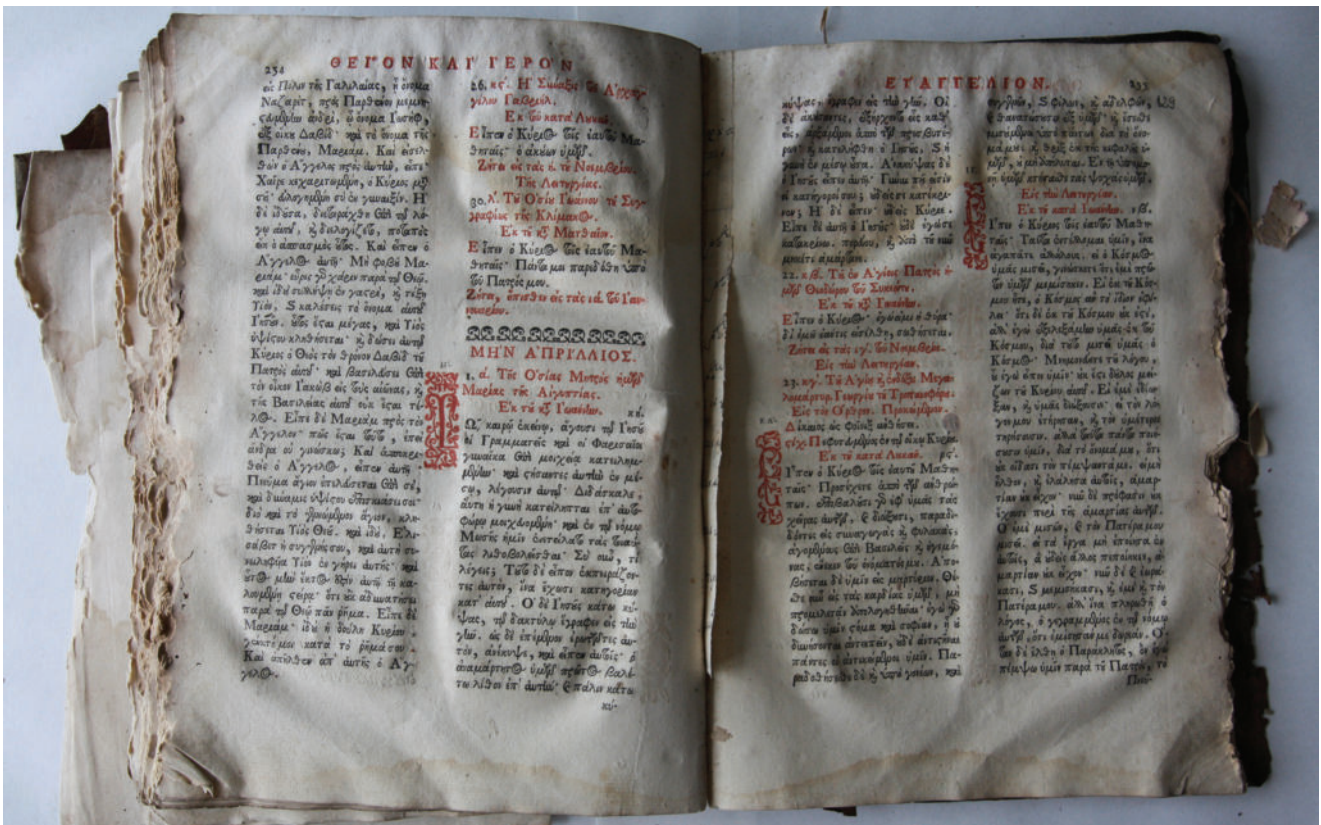 234
ΘΕΙ͂ΟΝ ΚΑῚ ἹΕΡῸΝ
εἰς Πόλιν τῆς Γαλιλαίας, ᾗ ὄνομα
Ναζαρὲτ, πρὸς Παρθένον μεμνη-
ςευμένην ἀνδρὶ, ᾧ ὄνομα Ἰωσὴφ,
ἐξ οἴκου Δαβίδ· καὶ τὸ ὄνομα τῆς
Παρθένου, Μαριάμ. Καὶ εἰσελ-
θὼν ὁ Ἄγγελος πρὸς αὐτὴν, εἶπε·
Χαῖρε κεχαριτωμένη, ὁ Κύριος μετὰ
σοῦ· εὐλογημένη σὺ ἐν γυναιξίν. Ἡ
δὲ ἰδοῦσα, διεταράχθη ἐπὶ τῷ λό-
γῳ αὐτοῦ, καὶ διελογίζετο, ποταπὸς
εἴη ὁ ἀσπασμὸς οὗτος. Καὶ εἶπεν ὁ
Ἄγγελος αὐτῇ· Μὴ φοβοῦ Μα-
ριάμ· εὗρες γὰρ χάριν παρὰ τῷ Θεῷ.
καὶ ἰδοὺ συλλήψῃ ἐν γαςρὶ, καὶ τέξῃ
Υἱὸν, καὶ καλέσεις τὸ ὄνομα αὐτοῦ
Ἰησοῦν. οὗτος ἔςαι μέγας, καὶ Υἱὸς
ὑψίςου κληθήσεται· καὶ δώσει αὐτῷ
Κύριος ὁ Θεὸς τὸν θρόνον Δαβὶδ τοῦ
Πατρὸς αὐτοῦ· καὶ βασιλεύσει ἐπὶ
τὸν οἶκον Ἰακὼβ εἰς τοὺς αἰῶνας, καὶ
τῆς Βασιλείας αὐτοῦ οὐκ ἔςαι τέ-
λος. Εἶπε δὲ Μαριὰμ πρὸς τὸν
Ἄγγελον· πῶς ἔςαι τοῦτο, ἐπεὶ
ἄνδρα οὐ γινώσκω; Καὶ ἀποκρι-
θεὶς ὁ Ἄγγελος, εἶπεν αὐτῇ·
Πνεῦμα ἅγιον ἐπελεύσεται ἐπὶ σὲ,
καὶ δύναμις ὑψίςου ἐπισκιάσει σοι·
διὸ καὶ τὸ γεννώμενον ἅγιον, κλη-
θήσεται Υἱὸς Θεοῦ. καὶ ἰδοὺ, Ἐλι-
σάβετ ἡ συγγενής σου, καὶ αὐτὴ συ-
νειληφυῖα Υἱὸν ἐν γήρει αὐτῆς· καὶ
οὗτος μὴν ἕκτος ἐςὶν αὐτῇ τῇ κα-
λουμένῃ ςείρᾳ· ὅτι οὐκ ἀδυνατήσει
παρὰ τῷ Θεῷ πᾶν ῥῆμα. Εἶπε δὲ
Μαριάμ· ἰδοὺ ἡ δούλη Κυρίου,
γένοιτό μοι κατὰ τὸ ῥῆμά σου.
Καὶ ἀπῆλθεν ἀπ' αὐτῆς ὁ Ἄγ-
γελος.
26. κϛ'. Ἡ Σύναξις τοῦ Ἀρχαγ-
γέλου Γαβριήλ.
Ἐκ τοῦ κατὰ Λουκᾶν.
Εἶπεν ὁ Κύριος τοῖς ἑαυτοῦ Μα-
θηταῖς· ὁ ἀκούων ὑμῶν.
Ζήτει εἰς τὰς η. τοῦ Νοεμβρίου.
Τῆς Λειτουργίας.
30. λ'. Τοῦ Ὁσίου Ἰωάννου τοῦ Συγ-
γραφέως τῆς Κλίμακος.
Ἐκ τοῦ κατὰ Ματθαῖον.
Εἶπεν ὁ Κύριος τοῖς ἑαυτοῦ Μα-
θηταῖς· Πάντα μοι παρεδόθη ὑπὸ
τοῦ Πατρός μου.
Ζήτει, ὄπισθεν εἰς τὰς ια. τοῦ Ἰαν-
νουαρίου.
ΜῊΝ ἈΠΡΊΛΛΙΟΣ.
1. α'. Τῆς Ὁσίας Μητρὸς ἡμῶν
Μαρίας τῆς Αἰγυπτίας.
Ἐκ τοῦ κατὰ Ἰωάννην.
Τῷ καιρῷ ἐκείνῳ, ἄγουσι τῷ Ἰησοῦ
οἱ Γραμματεῖς καὶ οἱ Φαρισαῖοι
γυναῖκα ἐπὶ μοιχείᾳ κατειλημ-
μένην· καὶ ςήσαντες αὐτὴν ἐν μέ-
σῳ, λέγουσιν αὐτῷ· Διδάσκαλε,
αὕτη ἡ γυνὴ κατείληπται ἐπ' αὐτο-
φώρῳ μοιχευομένη· καὶ ἐν τῷ νόμῳ
Μωσῆς ἡμῖν ἐνετείλατο τὰς τοιαύ-
τας λιθοβολεῖσθαι· Σὺ οὖν, τί
λέγεις; Τοῦτο δὲ εἶπον ἐκπειράζον-
τες αὐτὸν, ἵνα ἔχωσι κατηγορίαν
κατ' αὐτοῦ. Ὁ δὲ Ἰησοῦς κάτω κύ-
ψας, τῷ δακτύλῳ ἔγραφεν εἰς τὴν
γῆν. ὡς δὲ ἐπέμενον ἐρωτῶντες αὐ-
τὸν, ἀνέκυψε, καὶ εἶπεν αὐτοῖς· ὁ
ἀναμάρτητος ὑμῶν πρῶτος βαλέ-
τω λίθον ἐπ' αὐτήν· καὶ πάλιν κάτω
κύ-
ΕΥΑΓΓΕΛΙΟΝ.
κύψας, ἔγραφεν εἰς τὴν γῆν. Οἱ
δὲ ἀκούσαντες, ἐξήρχοντο εἷς καθ'
εἷς, ἀρξάμενοι ἀπὸ τῶν πρεσβυτέ-
ρων· καὶ κατελήφθη ὁ Ἰησοῦς, καὶ ἡ
γυνὴ ἐν μέσῳ οὖσα. Ἀνακύψας δὲ
ὁ Ἰησοῦς εἶπεν αὐτῇ· Γύναι ποῦ εἰσὶν
οἱ κατήγοροί σου; οὐδείς σε κατέκρι-
νεν; Ἡ δὲ εἶπεν· οὐδεὶς Κύριε.
Εἶπε δὲ αὐτῇ ὁ Ἰησοῦς· οὐδὲ ἐγώ σε
κατακρίνω. πορεύου, καὶ ἀπὸ τοῦ νῦν
μηκέτι ἁμάρτανε.
22. κβ. Τοῦ ἐν Ἁγίοις Πατρὸς ἡ-
μῶν Θεοδώρου τοῦ Συκεώτου.
Ἐκ τοῦ κατὰ Ἰωάννην.
Εἶπεν ὁ Κύριος· ἐγώ εἰμι ἡ θύρα·
δι' ἐμοῦ ἐάν τις εἰσέλθῃ, σωθήσεται.
Ζήτει εἰς τὰς ιγ. τοῦ Νοεμβρίου.
Εἰς τὴν Λειτουργίαν.
23. κγ'. Τοῦ Ἁγίου καὶ ἐνδόξου Μεγα-
λομάρτυρος Γεωργίου τοῦ Τροπαιοφόρου.
Εἰς τὸν Ὄρθρον. Προκείμενον.
Δίκαιος ὡς φοῖνιξ ἀνθήσει.
ςίχ. Πεφυτευμένος ἐν τῷ οἴκῳ Κυρίου.
Ἐκ τοῦ κατὰ Λουκᾶν.
Εἶπεν ὁ Κύριος τοῖς ἑαυτοῦ Μαθη-
ταῖς· Προσέχετε ἀπὸ τῶν ἀνθρώ-
πων. ἐπιβαλοῦσι γὰρ ἐφ' ὑμᾶς τὰς
χεῖρας αὐτῶν, καὶ διώξουσι, παραδι-
δόντες εἰς συναγωγὰς καὶ φυλακὰς,
ἀγομένους ἐπὶ Βασιλεῖς καὶ ἡγεμό-
νας, ἕνεκεν τοῦ ὀνόματός μου. Ἀπο-
βήσεται δὲ ὑμῖν εἰς μαρτύριον. Θέ-
σθε οὖν εἰς τὰς καρδίας ὑμῶν, μὴ
προμελετᾶν ἀπολογηθῆναι· ἐγὼ γὰρ
δώσω ὑμῖν ςόμα καὶ σοφίαν, ᾗ οὐ
δυνήσονται ἀντειπεῖν, οὐδὲ ἀντιςῆναι
πάντες οἱ ἀντικείμενοι ὑμῖν. Πα-
ραδοθήσεσθε δὲ καὶ ὑπὸ γονέων, καὶ
συγγενῶν, καὶ φίλων, καὶ ἀδελφῶν,
καὶ θανατώσουσιν ἐξ ὑμῶν· καὶ ἔσεσθε
μισούμενοι ὑπὸ πάντων διὰ τὸ ὄνο-
μά μου· καὶ θρὶξ ἐκ τῆς κεφαλῆς ὑ-
μῶν, οὐ μὴ ἀπόληται. Ἐν τῇ ὑπομο-
νῇ ὑμῶν κτήσασθε τὰς ψυχὰς ὑμῶν.
Εἰς τὴν Λειτουργίαν.
Ἐκ τοῦ κατὰ Ἰωάννην. νβ.
Εἶπεν ὁ Κύριος τοῖς ἑαυτοῦ Μαθη-
ταῖς· Ταῦτα ἐντέλλομαι ὑμῖν, ἵνα
ἀγαπᾶτε ἀλλήλους. εἰ ὁ Κόσμος
ὑμᾶς μισεῖ, γινώσκετε ὅτι ἐμὲ πρῶ-
τον ὑμῶν μεμίσηκεν. Εἰ ἐκ τοῦ Κόσ-
μου ἦτε, ὁ Κόσμος ἂν τὸ ἴδιον ἐφί-
λει· ὅτι δὲ ἐκ τοῦ Κόσμου οὐκ ἐςὲ,
ἀλλ' ἐγὼ ἐξελεξάμην ὑμᾶς ἐκ τοῦ
Κόσμου, διὰ τοῦτο μισεῖ ὑμᾶς ὁ
Κόσμος· Μνημονεύετε τοῦ λόγου,
οὗ ἐγὼ εἶπον ὑμῖν· οὐκ ἔςι δοῦλος μεί-
ζων τοῦ Κυρίου αὐτοῦ. Εἰ ἐμὲ ἐδίω-
ξαν, καὶ ὑμᾶς διώξουσιν· εἰ τὸν λό-
γον μου ἐτήρησαν, καὶ τὸν ὑμέτερον
τηρήσουσιν. ἀλλὰ ταῦτα πάντα ποιή-
σουσιν ὑμῖν, διὰ τὸ ὄνομά μου, ὅτι
οὐκ οἴδασι τὸν πέμψαντά με. εἰ μὴ
ἦλθον, καὶ ἐλάλησα αὐτοῖς, ἁμαρ-
τίαν οὐκ εἶχον· νῦν δὲ πρόφασιν οὐκ
ἔχουσι περὶ τῆς ἁμαρτίας αὐτῶν.
Ὁ ἐμὲ μισῶν, καὶ τὸν Πατέρα μου
μισεῖ. εἰ τὰ ἔργα μὴ ἐποίησα ἐν
αὐτοῖς, ἃ οὐδεὶς ἄλλος πεποίηκεν, ἁ-
μαρτίαν οὐκ εἶχον· νῦν δὲ καὶ ἑωρά-
κασι, καὶ μεμισήκασι, καὶ ἐμὲ καὶ τὸν
Πατέρα μου. ἀλλ' ἵνα πληρωθῇ ὁ
λόγος, ὁ γεγραμμένος ἐν τῷ νόμῳ
αὐτῶν, ὅτι ἐμίσησάν με δωρεάν. Ὅ-
ταν δὲ ἔλθῃ ὁ Παράκλητος, ὃν ἐγὼ
πέμψω ὑμῖν παρὰ τοῦ Πατρὸς, τὸ
Πνεῦ-